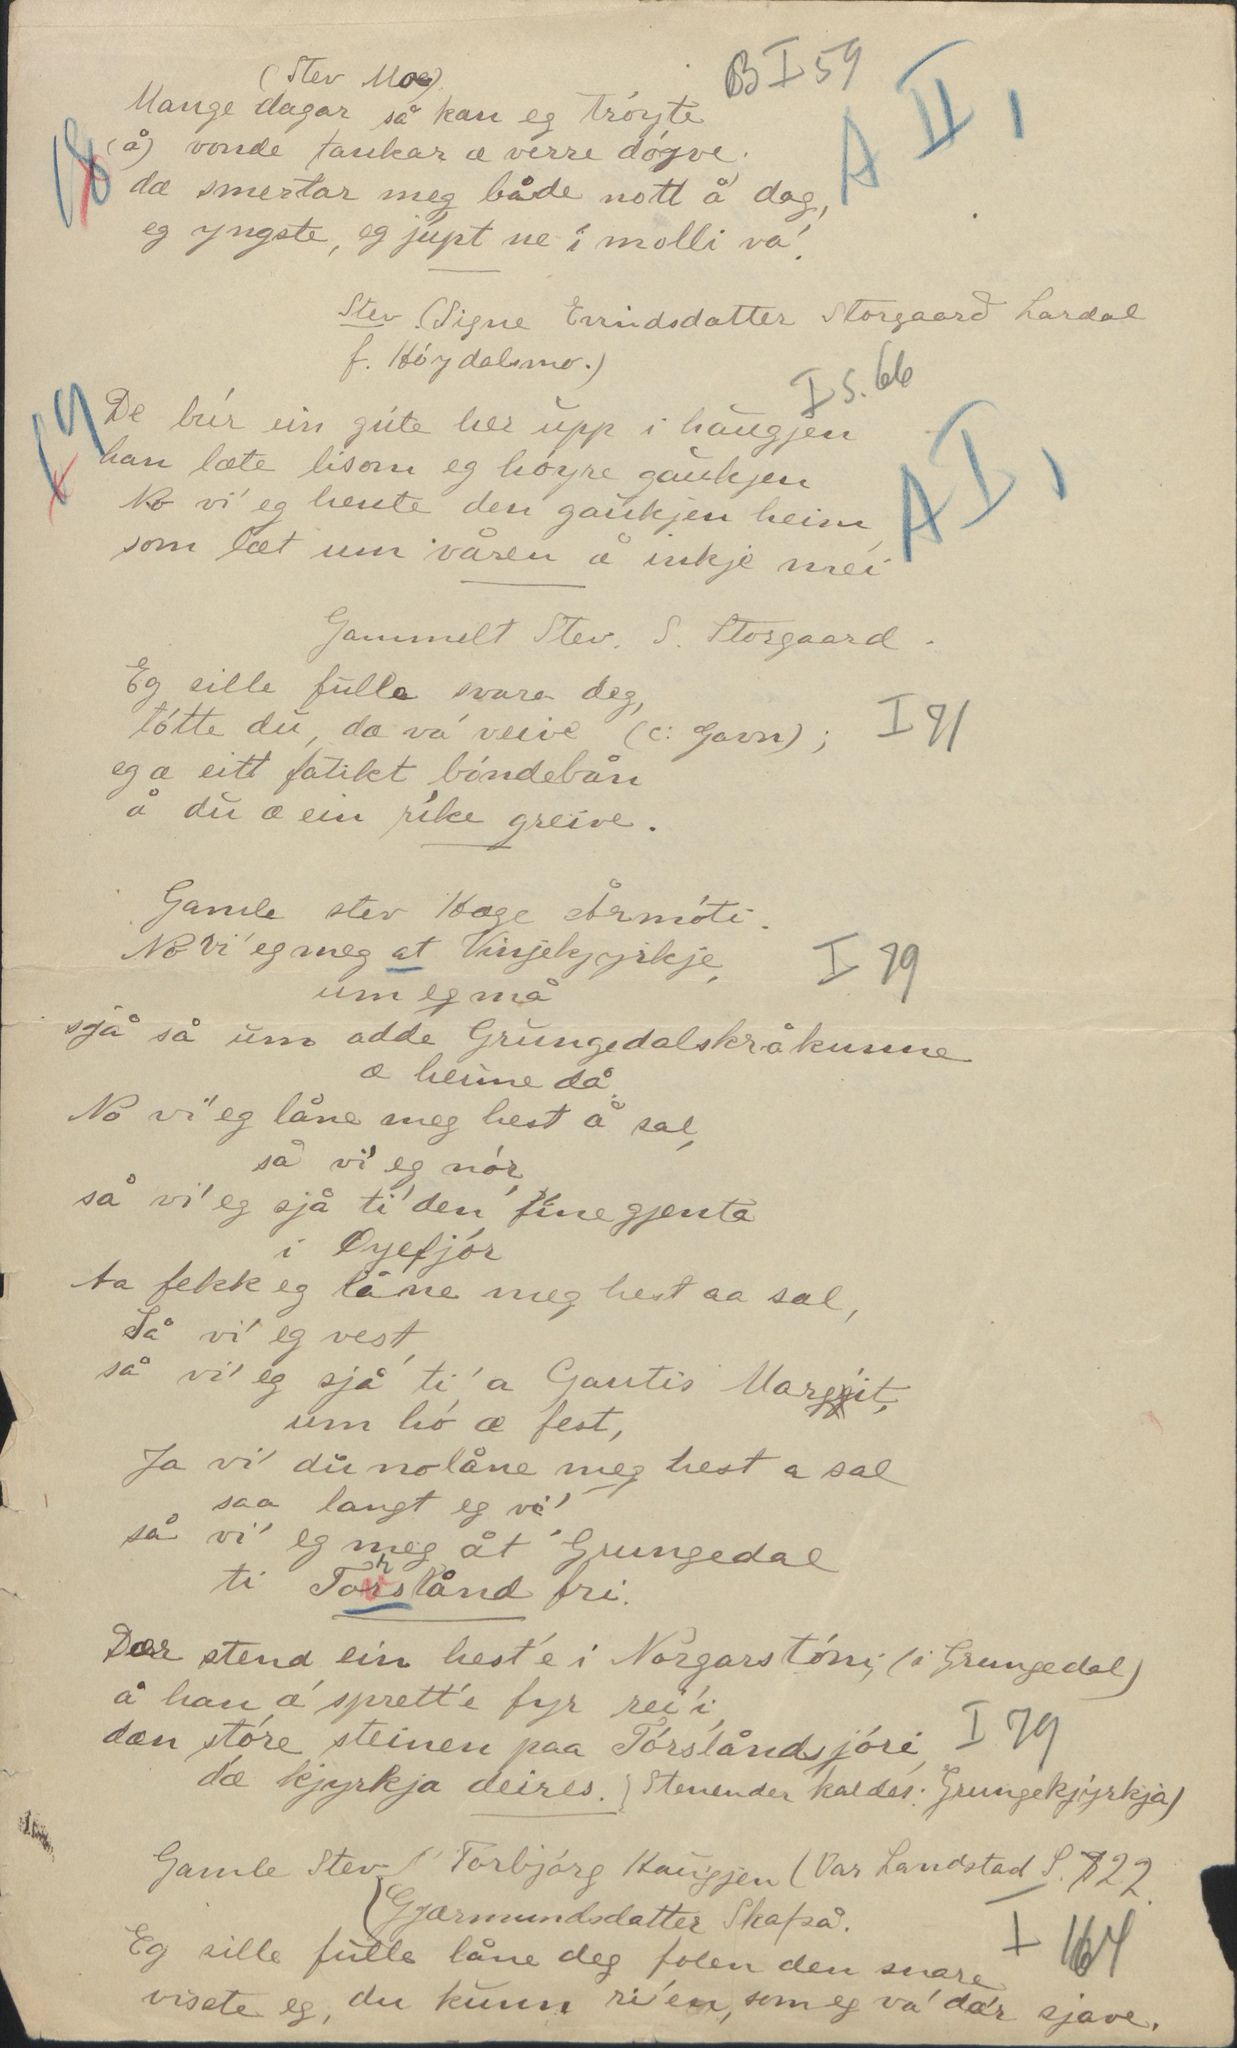 (Stev Moe)
B I 59
Mange dagar så kan eg tróyte
A II 1
18 (å) vonde tankar æ verre dóyve.
dæ smertar meg både nott å dag,
eg yngste, eg júpt ne í molli va'.
Stev (Signe Eivindsdatter Storgaard Lardal
f. Hóydalsmo.)
I S. 66
19 De búr ein gúte her upp i haugjen
han læte lisom eg hóyre gaukjen
A I 1
No vi' eg hente den gaukjen heim
som læt um våren å inkje mei
Gammelt Stev. S. Storgaard.
Eg sille fulla svara deg,
tótte du, da vá veive (c: Gavn);
I 71
eg æ eitt fatikt bóndebån
å du æ ein ríke greive.
Gamle stev Hæge Årmóti.
No vi' eg meg at Vinjekyrkje,
I 79
um eg må
sjå så um adde Grungedalskråkunne
æ heime då.
No vi' eg låne meg hest å sal,
så vi' eg nór,
så vi' eg sjå ti' den fíne gjenta
i Øyefjór
Aa fekk eg låne meg hest aa sal,
Så vi' eg vest,
så vi' eg sjå ti' a Gautis Margit,
um hó æ fest,
Ja vi' du no låne meg hest a sal
saa langt eg vi'
så vi' eg meg åt Grungedal
ti Torslånd fri.
Dær stend ein hest'e i Nórgarstóni, (i Grungedal)
å han æ' sprett'e fyr rei'i,
dæn stóre steinen paa Tórslåndsjóri,
I 79
dæ kjyrkja deires. (Stenender kaldes: Grungekjyrkja)
Gamle Stev Torbjórg Haugjen (Var Landstad S. 722.
(Gjærmundsdatter Skafså.
I 164
Eg sille fulla låne deg folen den snare
visste eg, du kunn ri'en, som eg va' dær sjave.